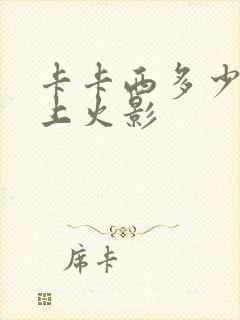 卡卡西多少
上火影
席卡